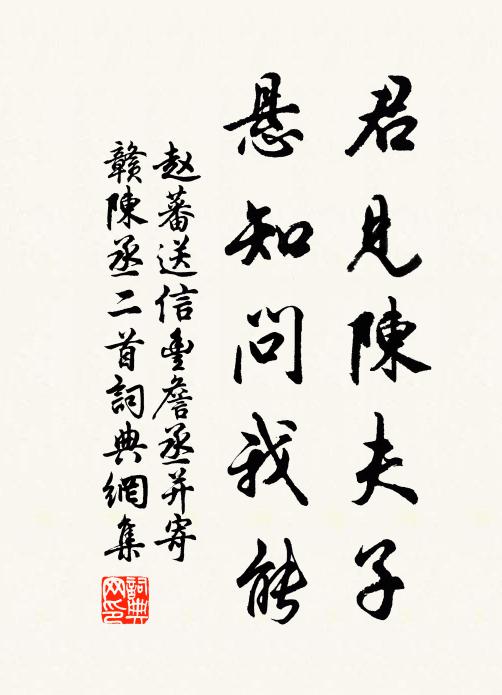 君見陳夫子
悬知問我能
赵蕃送信豊詹丞并寄
贛陳丞二首詞典網集
詞典网印